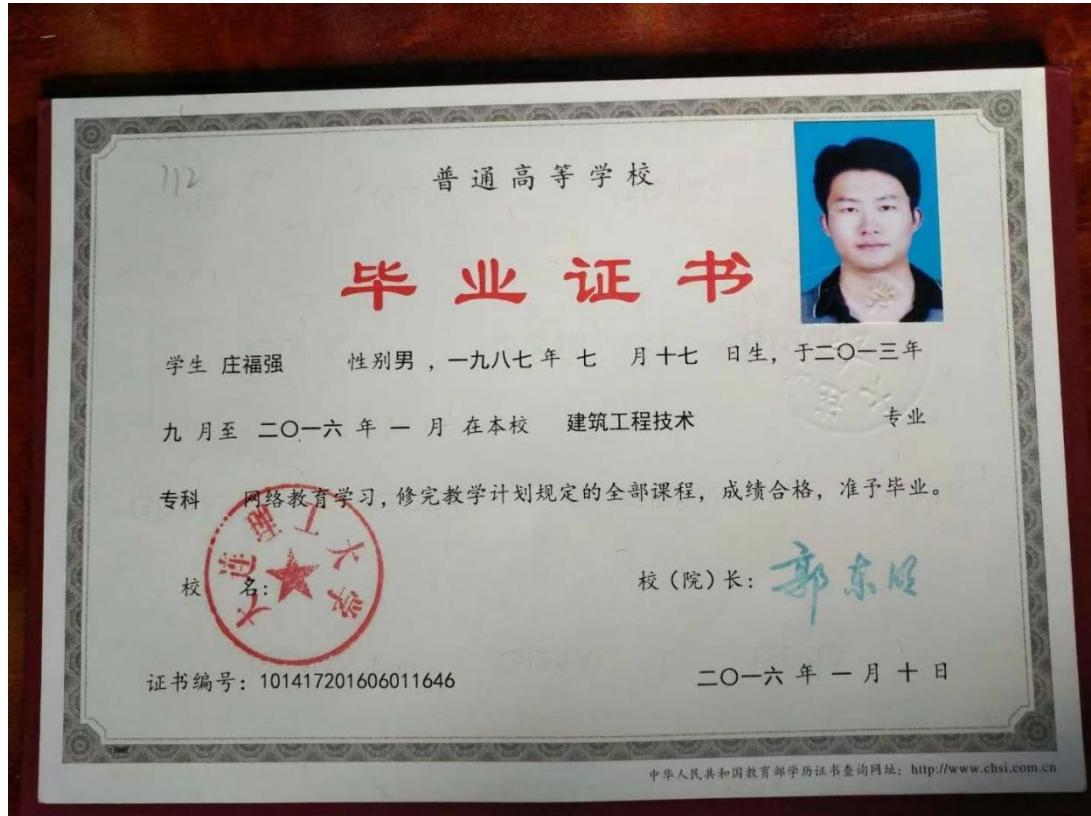 112
普通高等学校
毕业证书
学生 庄福强 性别男 ，一九八七年 七 月十七 日生，于二〇一三年
九 月至 二〇一六 年 一 月 在本校 建筑工程技术 专业
专科 网络教育学习，修完教学计划规定的全部课程，成绩合格，准予毕业。
大连理工大学
校 名：
校（院）长：郭东明
证书编号：101417201606011646
二〇一六 年 一 月 十 日
中华人民共和国教育部学历证书查询网址：http://www.chsi.com.cn